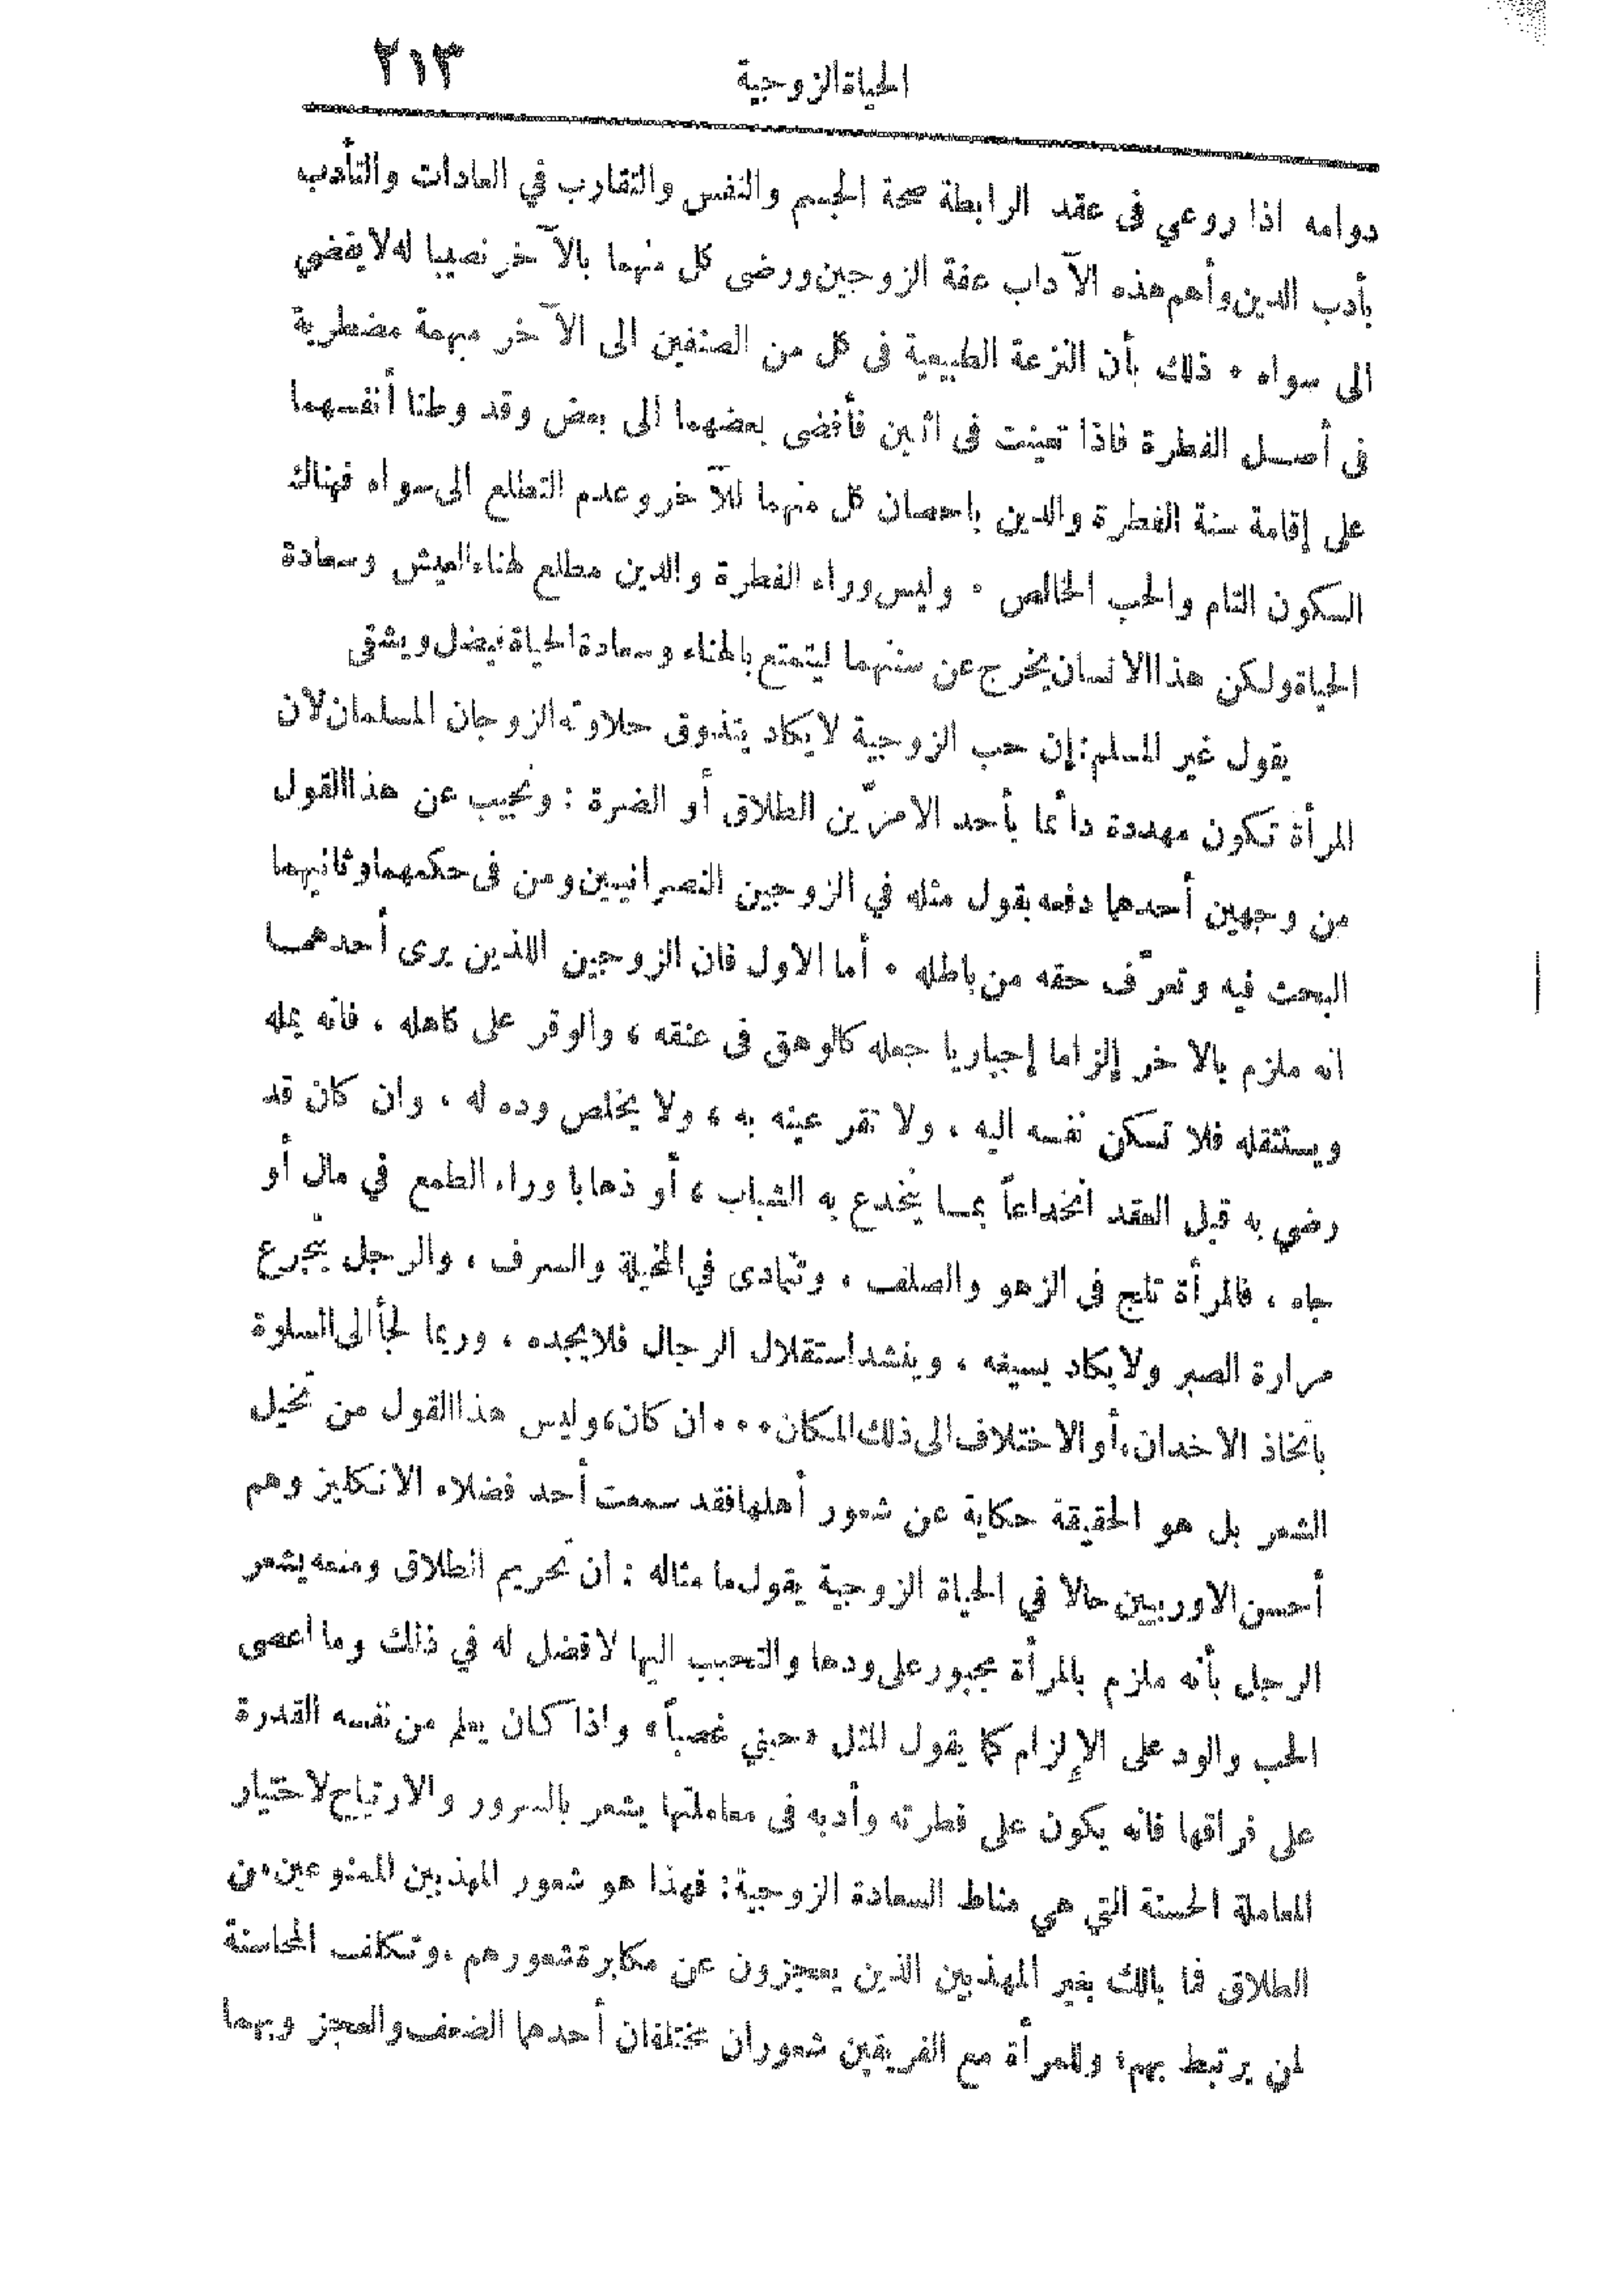 الحياة الزوجية ٢١٣
دوامه اذا روعي فى عقد الرابطة صحة الجسم والنفس والتقارب في العادات والتأدب
بأدب الدين وأهم هذه الآداب عفة الزوجين ورضى كل منهما بالآخر نصيبا له لا يفضي
الى سواه ٠ ذلك بأن النزعة الطبيعية فى كل من الصنفين الى الآخر مبهمة مضطربة
فى أصل الفطرة فاذا تعينت فى اثنين فأفضى بعضهما الى بعض وقد وطنا أنفسهما
على إقامة سنة الفطرة والدين باحصان كل منهما للآخر وعدم التطلع الى سواه فهناك
السكون التام والحب الخالص ٠ وليس وراء الفطرة والدين مطلع لهناء العيش وسعادة
الحياة ولكن هذا الانسان يخرج عن سننهما ليتمتع بالهناء وسعادة الحياة فيضل ويشقى
يقول غير المسلم: إن حب الزوجية لا يكاد يتذوق حلاوته الزوجان المسلمان لان
المرأة تكون مهددة دائما بأحد الامرّين الطلاق أو الضرة : ونجيب عن هذا القول
من وجهين أحدهما دفعه بقول مثله في الزوجين النصرانيين ومن فى حكمهما وثانيهما
البحث فيه وتعرّف حقه من باطله ٠ أما الاول فان الزوجين اللذين يرى أحدهمـا
انه ملزم بالاخر إلزاما إجباريا جعله كالوهق فى عنقه ، والوقر على كاهله ، فانه يمله
ويستثقله فلا تسكن نفسه اليه ، ولا تقر عينه به ، ولا يخلص وده له ، وان كان قد
رضي به قبل العقد انخداعاً بمـا ينخدع به الشباب ، أو ذهابا وراء الطمع في مال أو
جاه ، فالمرأة تلج فى الزهو والصلف ، وتتمادى في المخيلة والسرف ، والرجل يتجرع
مرارة الصبر ولا يكاد يسيغه ، وينشد استقلال الرجال فلا يجده ، وربما لجأ الى السلوة
باتخاذ الاخدان، أو الاختلاف الى ذلك المكان٠٠٠ ان كان، وليس هذا القول من تخيل
الشعر بل هو الحقيقة حكاية عن شعور أهلها فقد سمعت أحد فضلاء الانكليز وهم
أحسن الاوربيين حالا في الحياة الزوجية يقول ما مثاله : ان تحريم الطلاق ومنعه يشعر
الرجل بأنه ملزم بالمرأة مجبور على ودها والتحبب اليها لا فضل له في ذلك وما اعصى
الحب والود على الإلزام كما يقول المثل «حبني غصباً» واذا كان يعلم من نفسه القدرة
على فراقها فانه يكون على فطرته وأدبه فى معاملتها يشعر بالسرور والارتياح لاختيار
المعاملة الحسنة التي هي مناط السعادة الزوجية: فهذا هو شعور المهذبين الممنوعين من
الطلاق فما بالك بغير المهذبين الذين يعجزون عن مكابرة شعورهم ، وتكلف المحاسنة
لمن يرتبط بهم؛ وللمرأة مع الفريقين شعوران مختلفان أحدهما الضعف والعجز وبهما